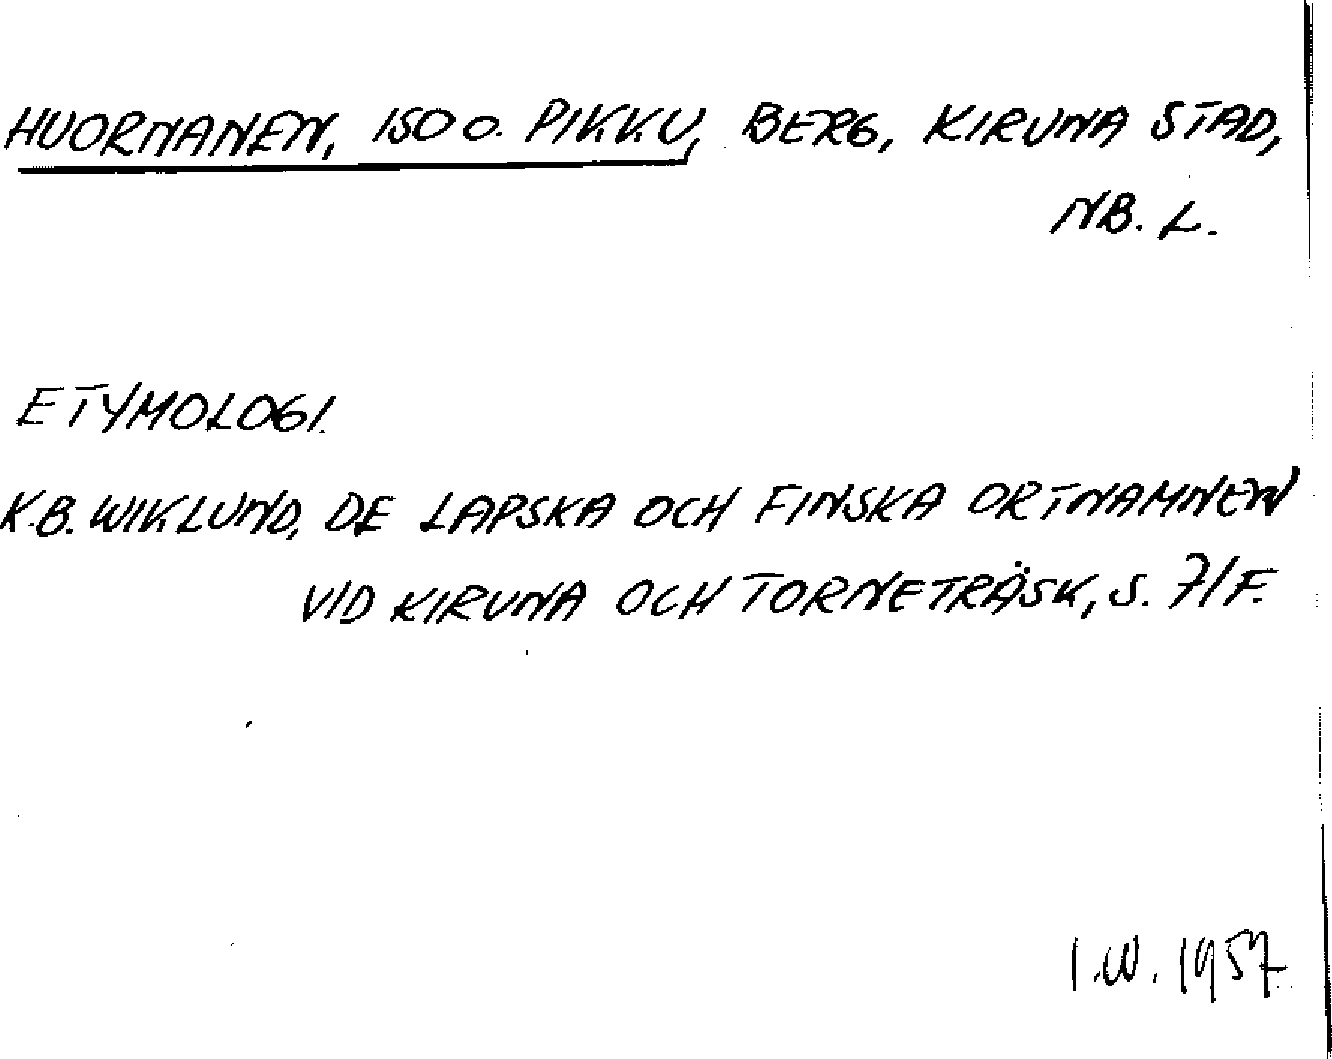 HUORNANEN, ISO o. PIKKU, BERG, KIRUNA STAD,
NB. L.
ETYMOLOGI.
K.B. WIKLUND, DE LAPSKA OCH FINSKA ORTNAMNEN
VID KIRUNA OCH TORNETRÄSK, S. 71F.
I.W. 1957